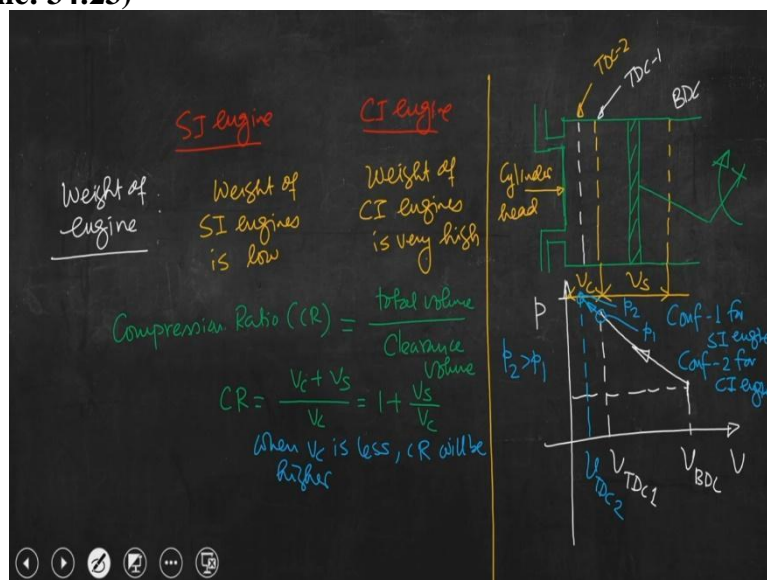 SI engine
CI engine
Weight of engine :
Weight of
SI engines
is low
Weight of
CI engines
is very high
Compression Ratio (CR) = total volume / Clearance volume
CR = Vc + Vs / Vc = 1 + Vs / Vc
When Vc is less, CR will be
higher
TDC-2
TDC-1
BDC
Cylinder
head
Vc
Vs
P
P2
P1
P2 > P1
Conf-1 for
SI engine
Conf-2 for
CI engine
VTDC2
VTDC1
VBDC
V